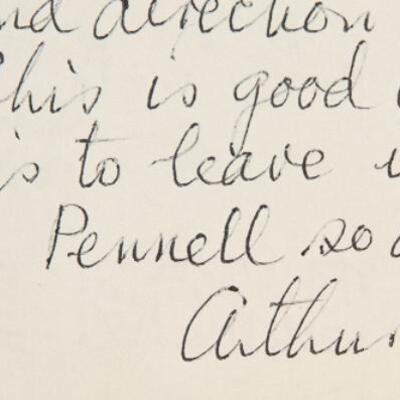 nd direction
This is good
is to leave
Pennell so
Arthur